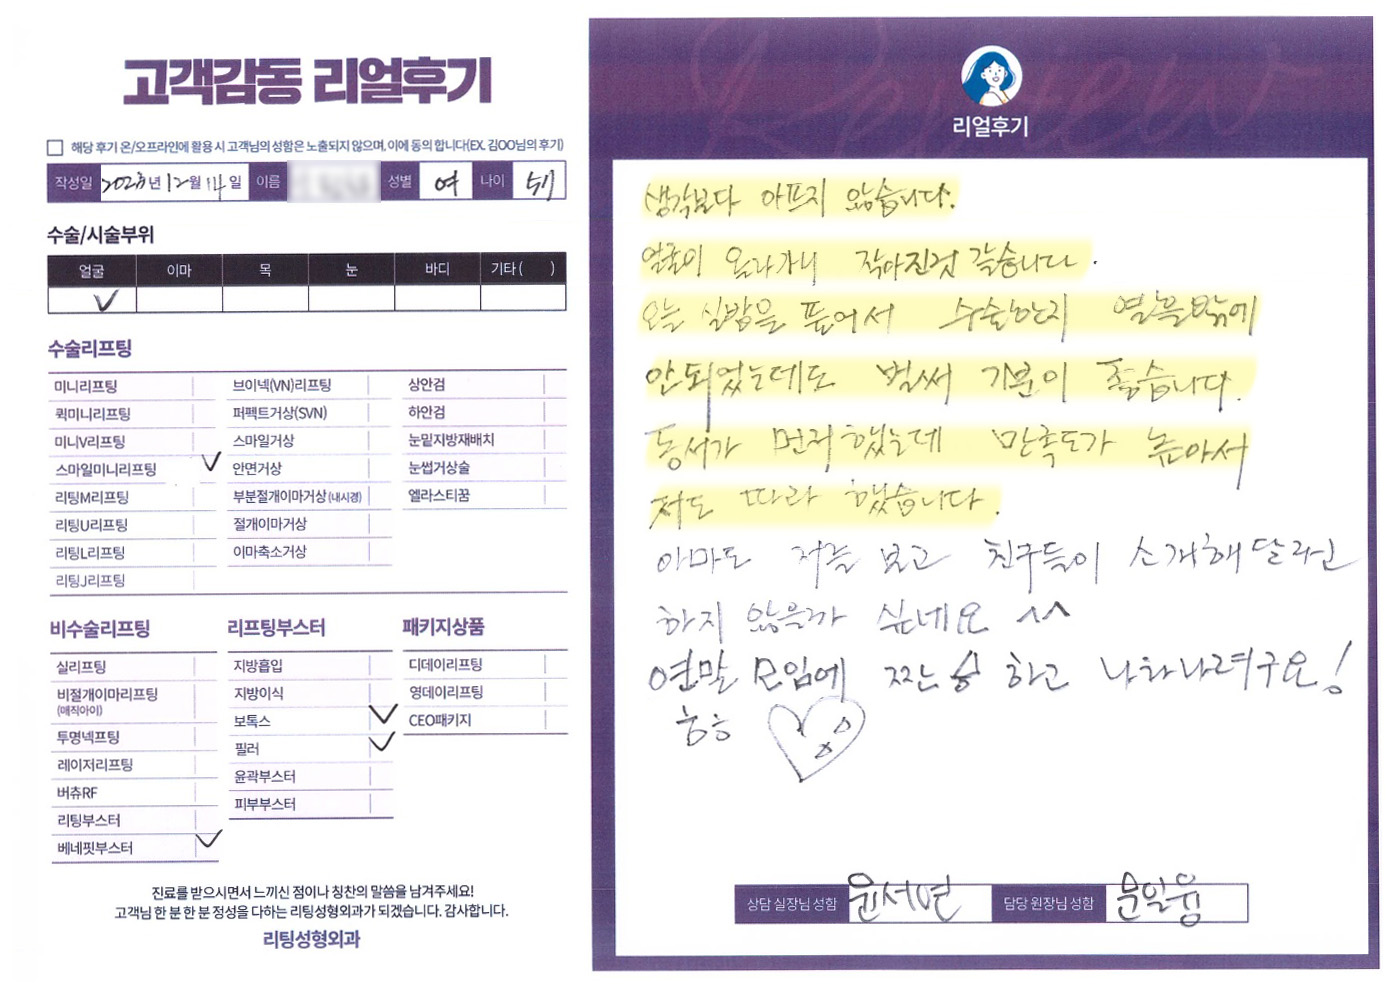 고객감동 리얼후기
해당 후기 온/오프라인에 활용 시 고객님의 성함은 노출되지 않으며, 이에 동의 합니다(EX. 김OO님의 후기)
작성일 년 12월 14일 이름 성별 여 나이
수술/시술부위
얼굴 이마 목 눈 바디 기타 ( )
수술리프팅
미니리프팅 브이넥(VN)리프팅 상안검
퀵미니리프팅 퍼펙트거상(SVN) 하안검
미니V리프팅 스마일거상 눈밑지방재배치
스마일미니리프팅 안면거상 눈썹거상술
리팅M리프팅 부분절개이마거상(내시경) 엘라스티꿈
리팅U리프팅 절개이마거상
리팅L리프팅 이마축소거상
리팅J리프팅
비수술리프팅 리프팅부스터 패키지상품
실리프팅 지방흡입 디데이리프팅
비절개이마리프팅 지방이식 영데이리프팅
(매직아이)
보톡스 CEO패키지
투명넥프팅 필러
레이저리프팅 윤곽부스터
버츄RF 피부부스터
리팅부스터
베네핏부스터
진료를 받으시면서 느끼신 점이나 칭찬의 말씀을 남겨주세요!
고객님 한 분 한 분 정성을 다하는 리팅성형외과가 되겠습니다. 감사합니다.
리팅성형외과
Review
리얼후기
생각보다 아프지 않습니다.
얼굴이 올라가니 작아진것 같습니다.
오늘 실밥을 풀어서 수술한지 열흘밖에
안되었는데도 벌써 기분이 좋습니다.
동서가 먼저 했는데 만족도가 높아서
저도 따라 했습니다.
아마도 저를 보고 친구들이 소개해 달라고
하지 않을까 싶네요 ^^
연말 모임에 짠 하고 나타나려구요!
ㅎㅎ
상담 실장님 성함 윤서연 담당 원장님 성함 문일융